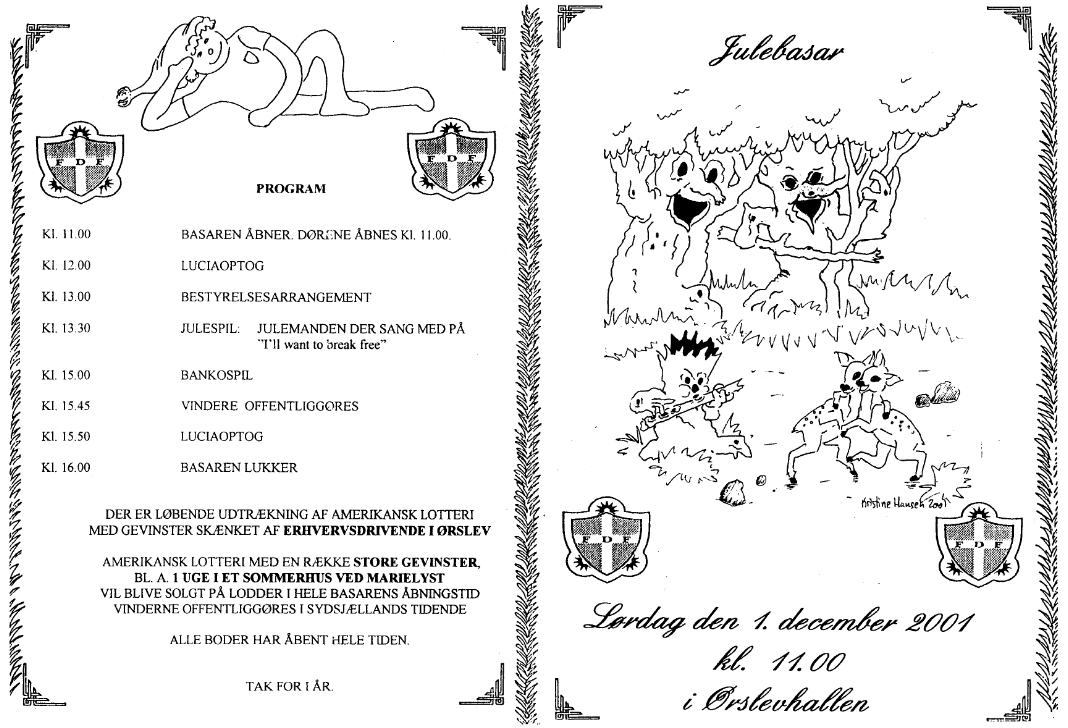 FDF
FDF
PROGRAM
Kl. 11.00 BASAREN ÅBNER. DØRENE ÅBNES Kl. 11.00.
Kl. 12.00 LUCIAOPTOG
Kl. 13.00 BESTYRELSESARRANGEMENT
Kl. 13.30 JULESPIL: JULEMANDEN DER SANG MED PÅ
"I'll want to break free"
Kl. 15.00 BANKOSPIL
Kl. 15.45 VINDERE OFFENTLIGGØRES
Kl. 15.50 LUCIAOPTOG
Kl. 16.00 BASAREN LUKKER
DER ER LØBENDE UDTRÆKNING AF AMERIKANSK LOTTERI
MED GEVINSTER SKÆNKET AF ERHVERVSDRIVENDE I ØRSLEV
AMERIKANSK LOTTERI MED EN RÆKKE STORE GEVINSTER,
BL. A. 1 UGE I ET SOMMERHUS VED MARIELYST
VIL BLIVE SOLGT PÅ LODDER I HELE BASARENS ÅBNINGSTID
VINDERNE OFFENTLIGGØRES I SYDSJÆLLANDS TIDENDE
ALLE BODER HAR ÅBENT HELE TIDEN.
TAK FOR I ÅR.
Julebasar
Kristine Hansen 2001
FDF
FDF
Lørdag den 1. december 2001
kl. 11.00
i Ørslevhallen